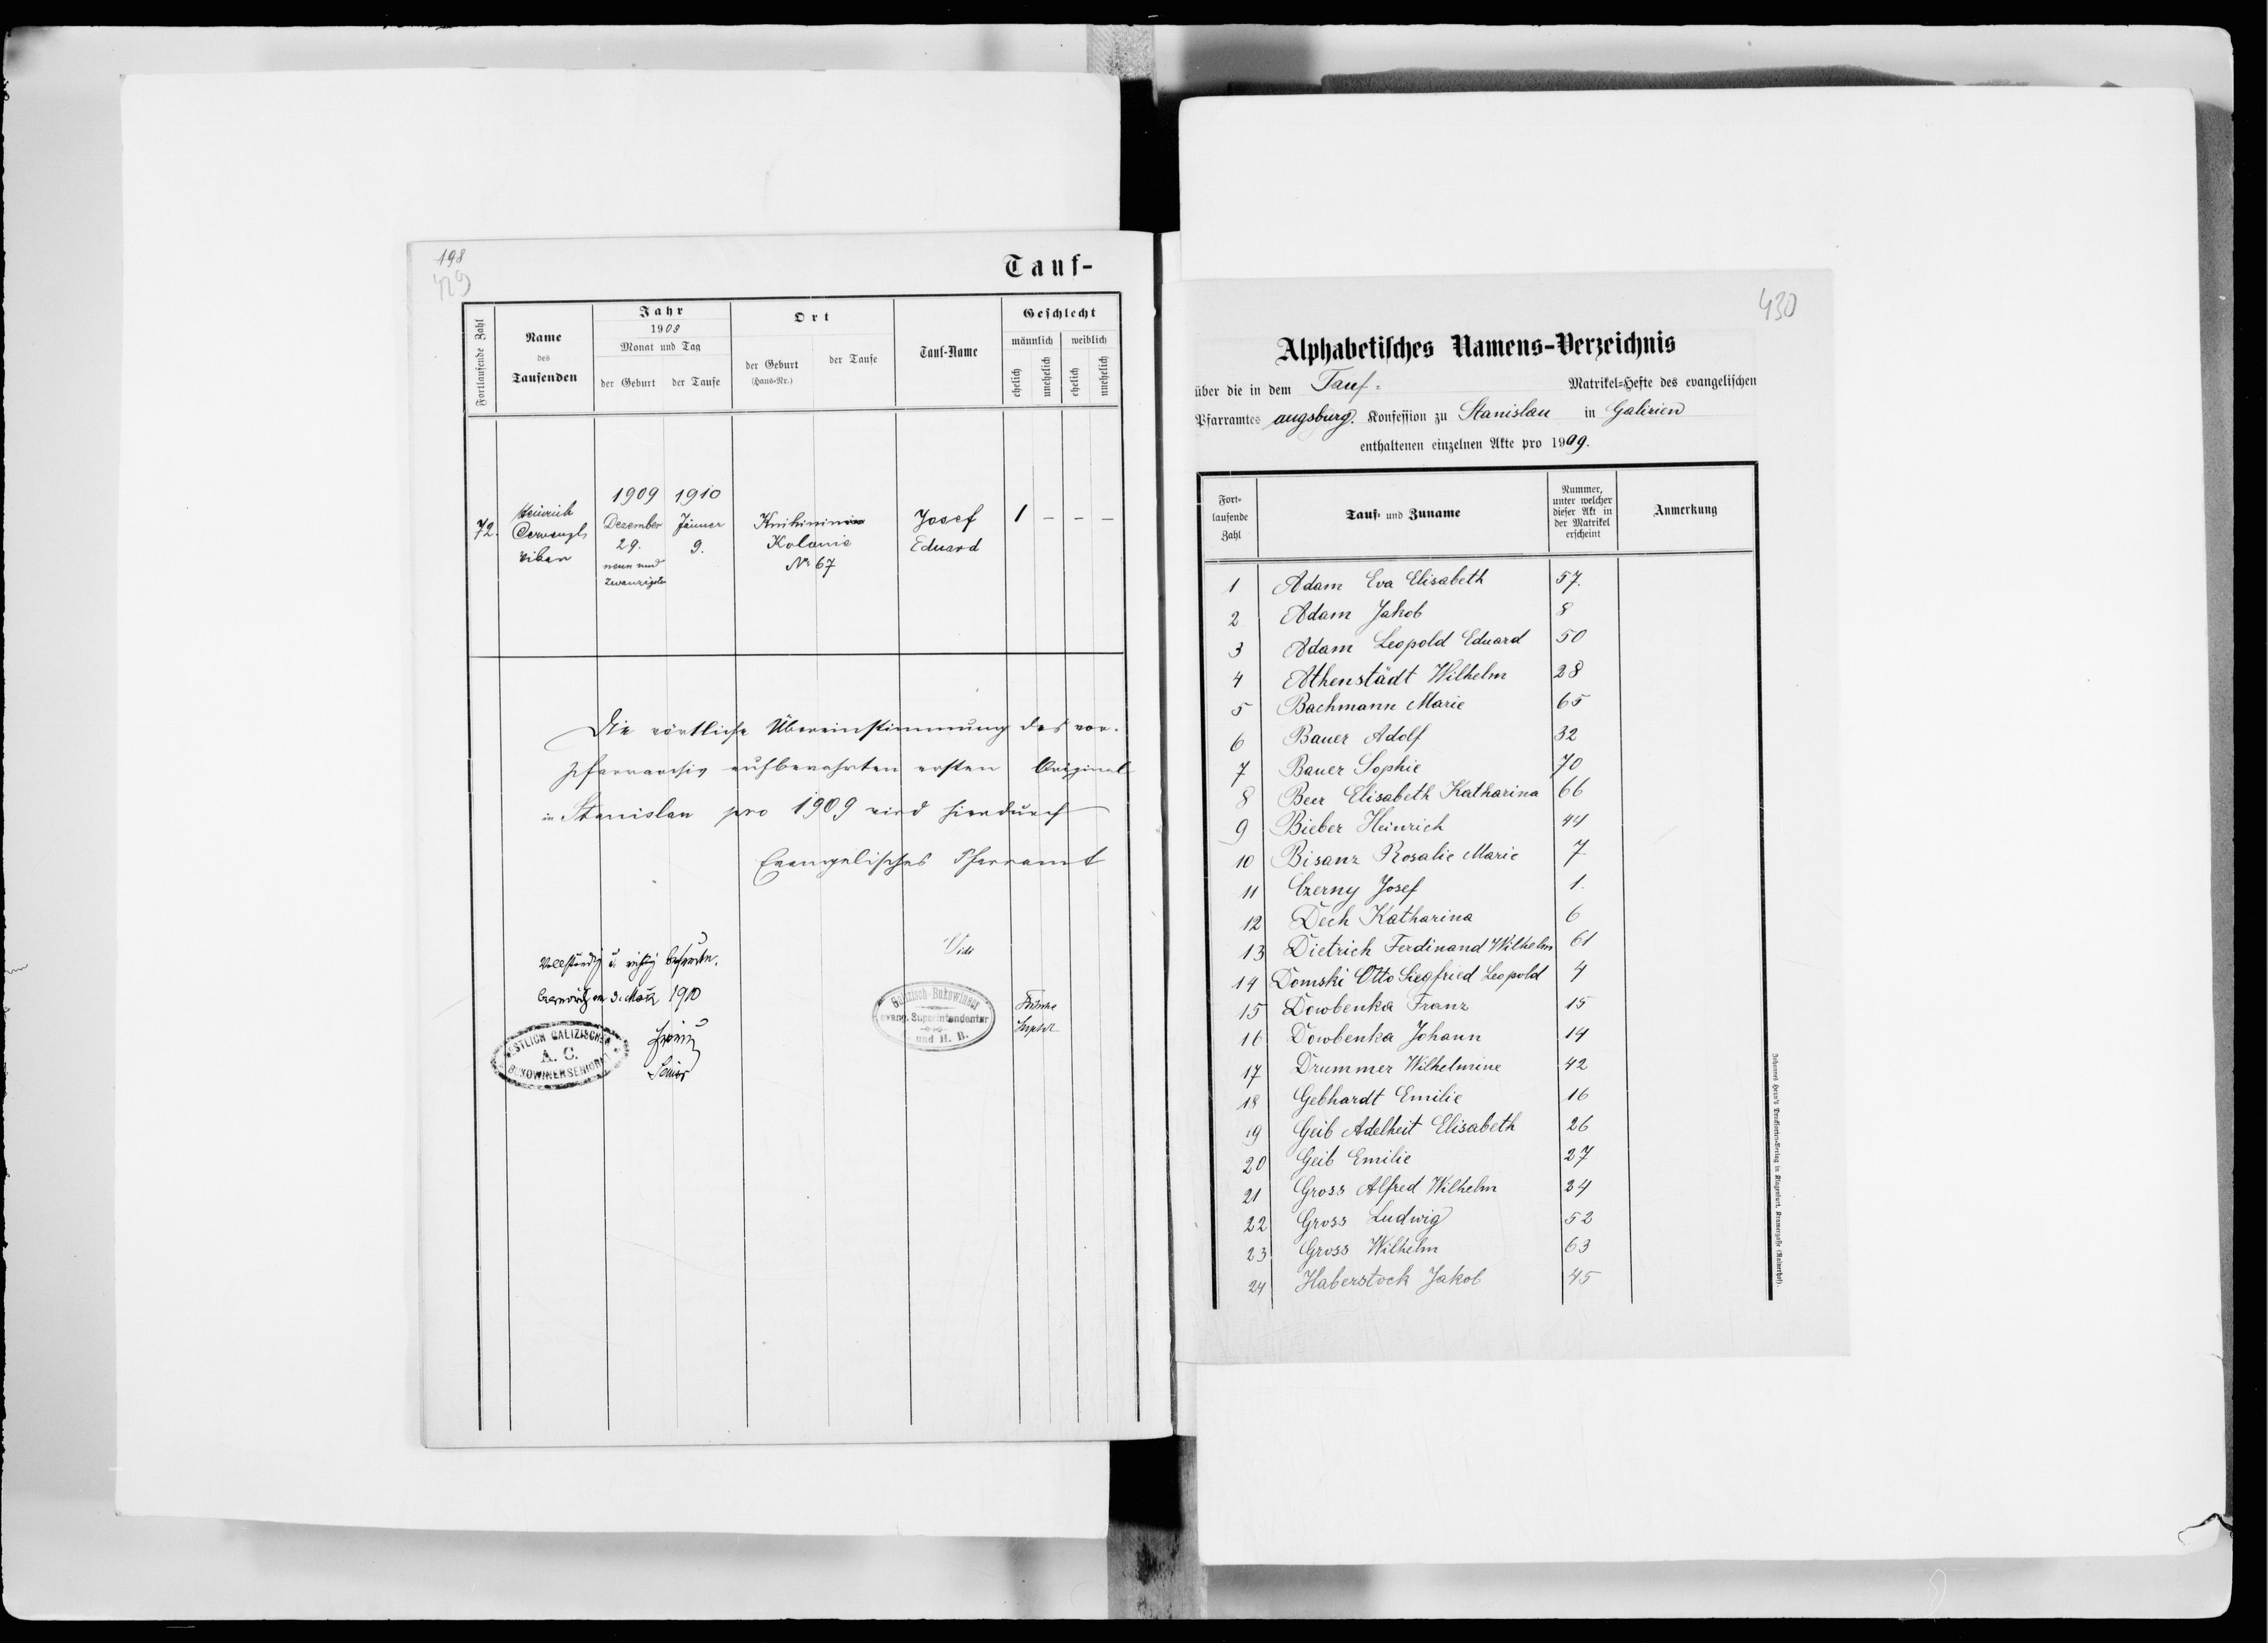 198
429
Tauf-
Fortlaufende Zahl
Name
des
Taufenden
Jahr
1908
Monat und Tag
der Geburt
der Taufe
Ort
der Geburt
(Haus-Nr.)
der Taufe
Tauf-Name
Geschlecht
männlich
weiblich
ehelich
unehelich
ehelich
unehelich
72.
Heinrich
1909 1910
Dezember Jänner
29. 9.
neun und
zwanzigster
Kolonie
No 67
Josef
Eduard
1 - - -
Die wörtliche Übereinstimmung des vor-
pfarrarchiv aufbewahrten ersten Original
in Stanislau pro 1909 wird hierdurch
Evangelisches Pfarramt
Vidi
Vollständig u. richtig befunden.
Czernowitz am 3. März 1910
Senior
ÖSTLICH GALIZISCHES
A. C.
BUKOWINER SENIORAT
Galizisch-Bukowiner
evang. Superintendentur
A. und H. B.
430
Alphabetisches Namens-Verzeichnis
über die in dem Tauf- Matrikel-Hefte des evangelischen
Pfarramtes augsburg. Konfession zu Stanislau in Galizien
enthaltenen einzelnen Akte pro 1909.
Fort-
laufende
Zahl
Tauf- und Zuname
Nummer,
unter welcher
dieser Akt in
der Matrikel
erscheint
Anmerkung
1 Adam Eva Elisabeth 57.
2 Adam Jakob 8
3 Adam Leopold Eduard 50
4 Athenstädt Wilhelm 28
5 Bachmann Marie 65
6 Bauer Adolf 32
7 Bauer Sophie 70
8 Beer Elisabeth Katharina 66
9 Bieber Heinrich 44
10 Bisanz Rosalie Marie 7.
11 Czerny Josef 1.
12 Dech Katharina 6
13 Dietrich Ferdinand Wilhelm 61
14 Domski Otto Siegfried Leopold 4
15 Dowbenka Franz 15
16 Dowbenka Johann 14
17 Drummer Wilhelmine 42
18 Gebhardt Emilie 16
19 Geib Adelheit Elisabeth 26
20 Geib Emilie 27
21 Gross Alfred Wilhelm 24
22 Gross Ludwig 52
23 Gross Wilhelm 63
24 Haberstock Jakob 45